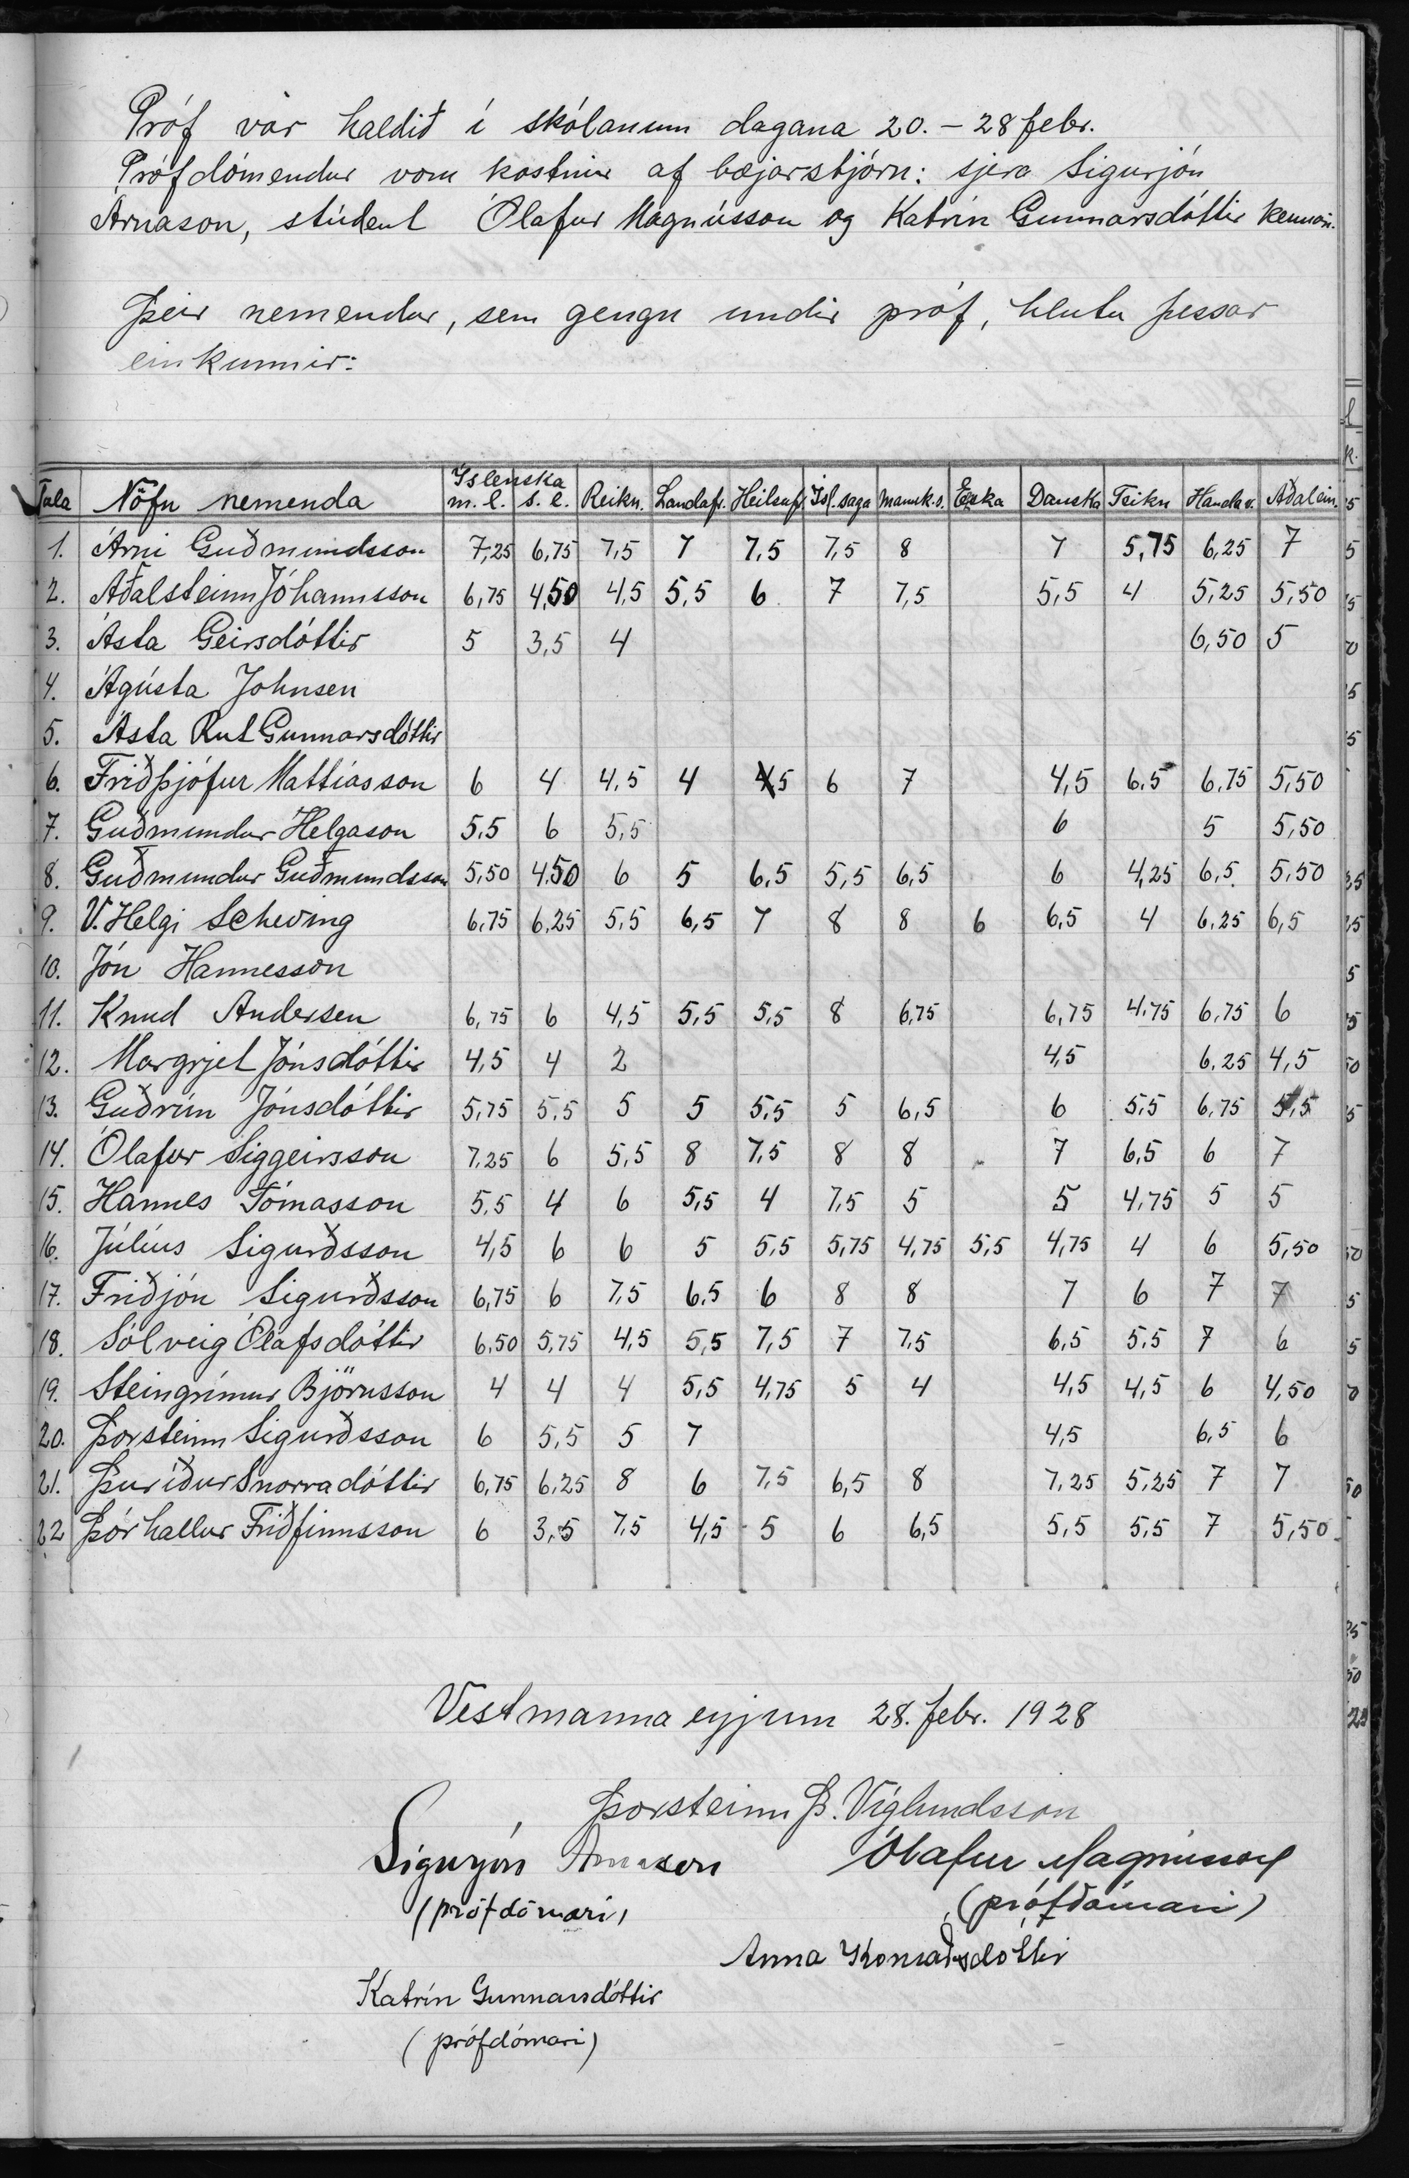 Próf var haldið í skólanum dagana 20. – 28 febr.
Prófdómendur voru kostnir af bæjarstjórn: sjera Sigurjón
Árnason, stúdent Ólafur Magnússon og Katrín Gunnarsdóttir kennari.
Þeir nemendur, sem gengu undir próf, hlutu þessar
einkunnir:
Tala Nöfn nemenda Íslenska m.l. s.l. Reikn. Landafr. Heilsufr. Ísl.saga Mannk.s. Enska Danska Teikn Handav. Aðalein.
1. Árni Guðmundsson 7,25 6,75 7,5 7 7,5 7,5 8 7 5,75 6,25 7
2. Aðalsteinn Jóhannsson 6,75 4,50 4,5 5,5 6 7 7,5 5,5 4 5,25 5,50
3. Ásta Geirsdóttir 5 3,5 4 6,50 5
4. Ágústa Johnsen
5. Ásta Rut Gunnarsdóttir
6. Friðþjófur Mattíasson 6 4 4,5 4 5 6 7 4,5 6,5 6,75 5,50
7. Guðmundur Helgason 5,5 6 5,5 6 5 5,50
8. Guðmundur Guðmundsson 5,50 4,50 6 5 6,5 5,5 6,5 6 4,25 6,5 5,50
9. V. Helgi Scheving 6,75 6,25 5,5 6,5 7 8 8 6 6,5 4 6,25 6,5
10. Jón Hannesson
11. Knud Andersen 6,75 6 4,5 5,5 5,5 8 6,75 6,75 4,75 6,75 6
12. Margrjet Jónsdóttir 4,5 4 2 4,5 6,25 4,5
13. Guðrún Jónsdóttir 5,75 5,5 5 5 5,5 5 6,5 6 5,5 6,75 5,5
14. Ólafur Siggeirsson 7,25 6 5,5 8 7,5 8 8 7 6,5 6 7
15. Hannes Tómasson 5,5 4 6 5,5 4 7,5 5 5 4,75 5 5
16. Júlíus Sigurðsson 4,5 6 6 5 5,5 5,75 4,75 5,5 4,75 4 6 5,50
17. Friðjón Sigurðsson 6,75 6 7,5 6,5 6 8 8 7 6 7 7
18. Sólveig Ólafsdóttir 6,50 5,75 4,5 5,5 7,5 7 7,5 6,5 5,5 7 6
19. Steingrímur Björnsson 4 4 4 5,5 4,75 5 4 4,5 4,5 6 4,50
20. Þorsteinn Sigurðsson 6 5,5 5 7 4,5 6,5 6
21. Þuríður Snorradóttir 6,75 6,25 8 6 7,5 6,5 8 7,25 5,25 7 7
22 Þórhallur Friðfinnsson 6 3,5 7,5 4,5 5 6 6,5 5,5 5,5 7 5,50
Vestmannaeyjum 28. febr. 1928
Þorsteinn Þ. Víglundsson
Sigurjón Árnason Ólafur Magnússon
(prófdómari) (prófdómari)
Anna Konráðsdóttir
Katrín Gunnarsdóttir
(prófdómari)